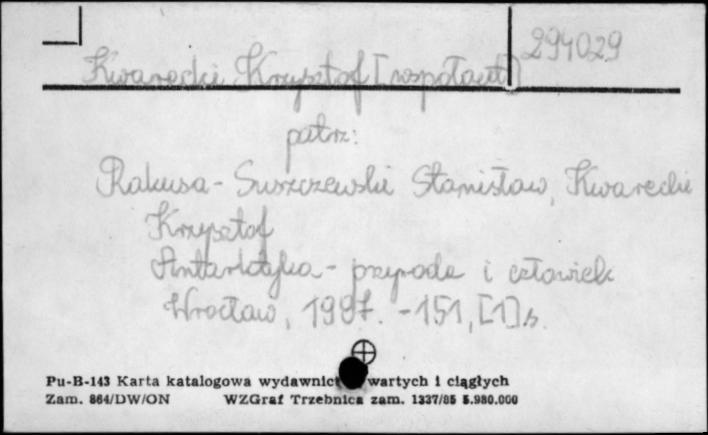 294029
Kwarecki Krzysztof [współaut]
patrz:
Rakusa-Suszczewski Stanisław, Kwarecki
Krzysztof
Antarktyka - przyroda i człowiek
Wrocław, 1987. - 151, [1] s.
Pu-B-143 Karta katalogowa wydawnict wartych i ciągłych
Zam. 864/DW/ON WZGraf Trzebnica zam. 1337/85 5.980.000